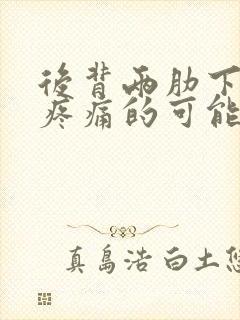 後背两肋下
疼痛的可能
真島浩 白土悠